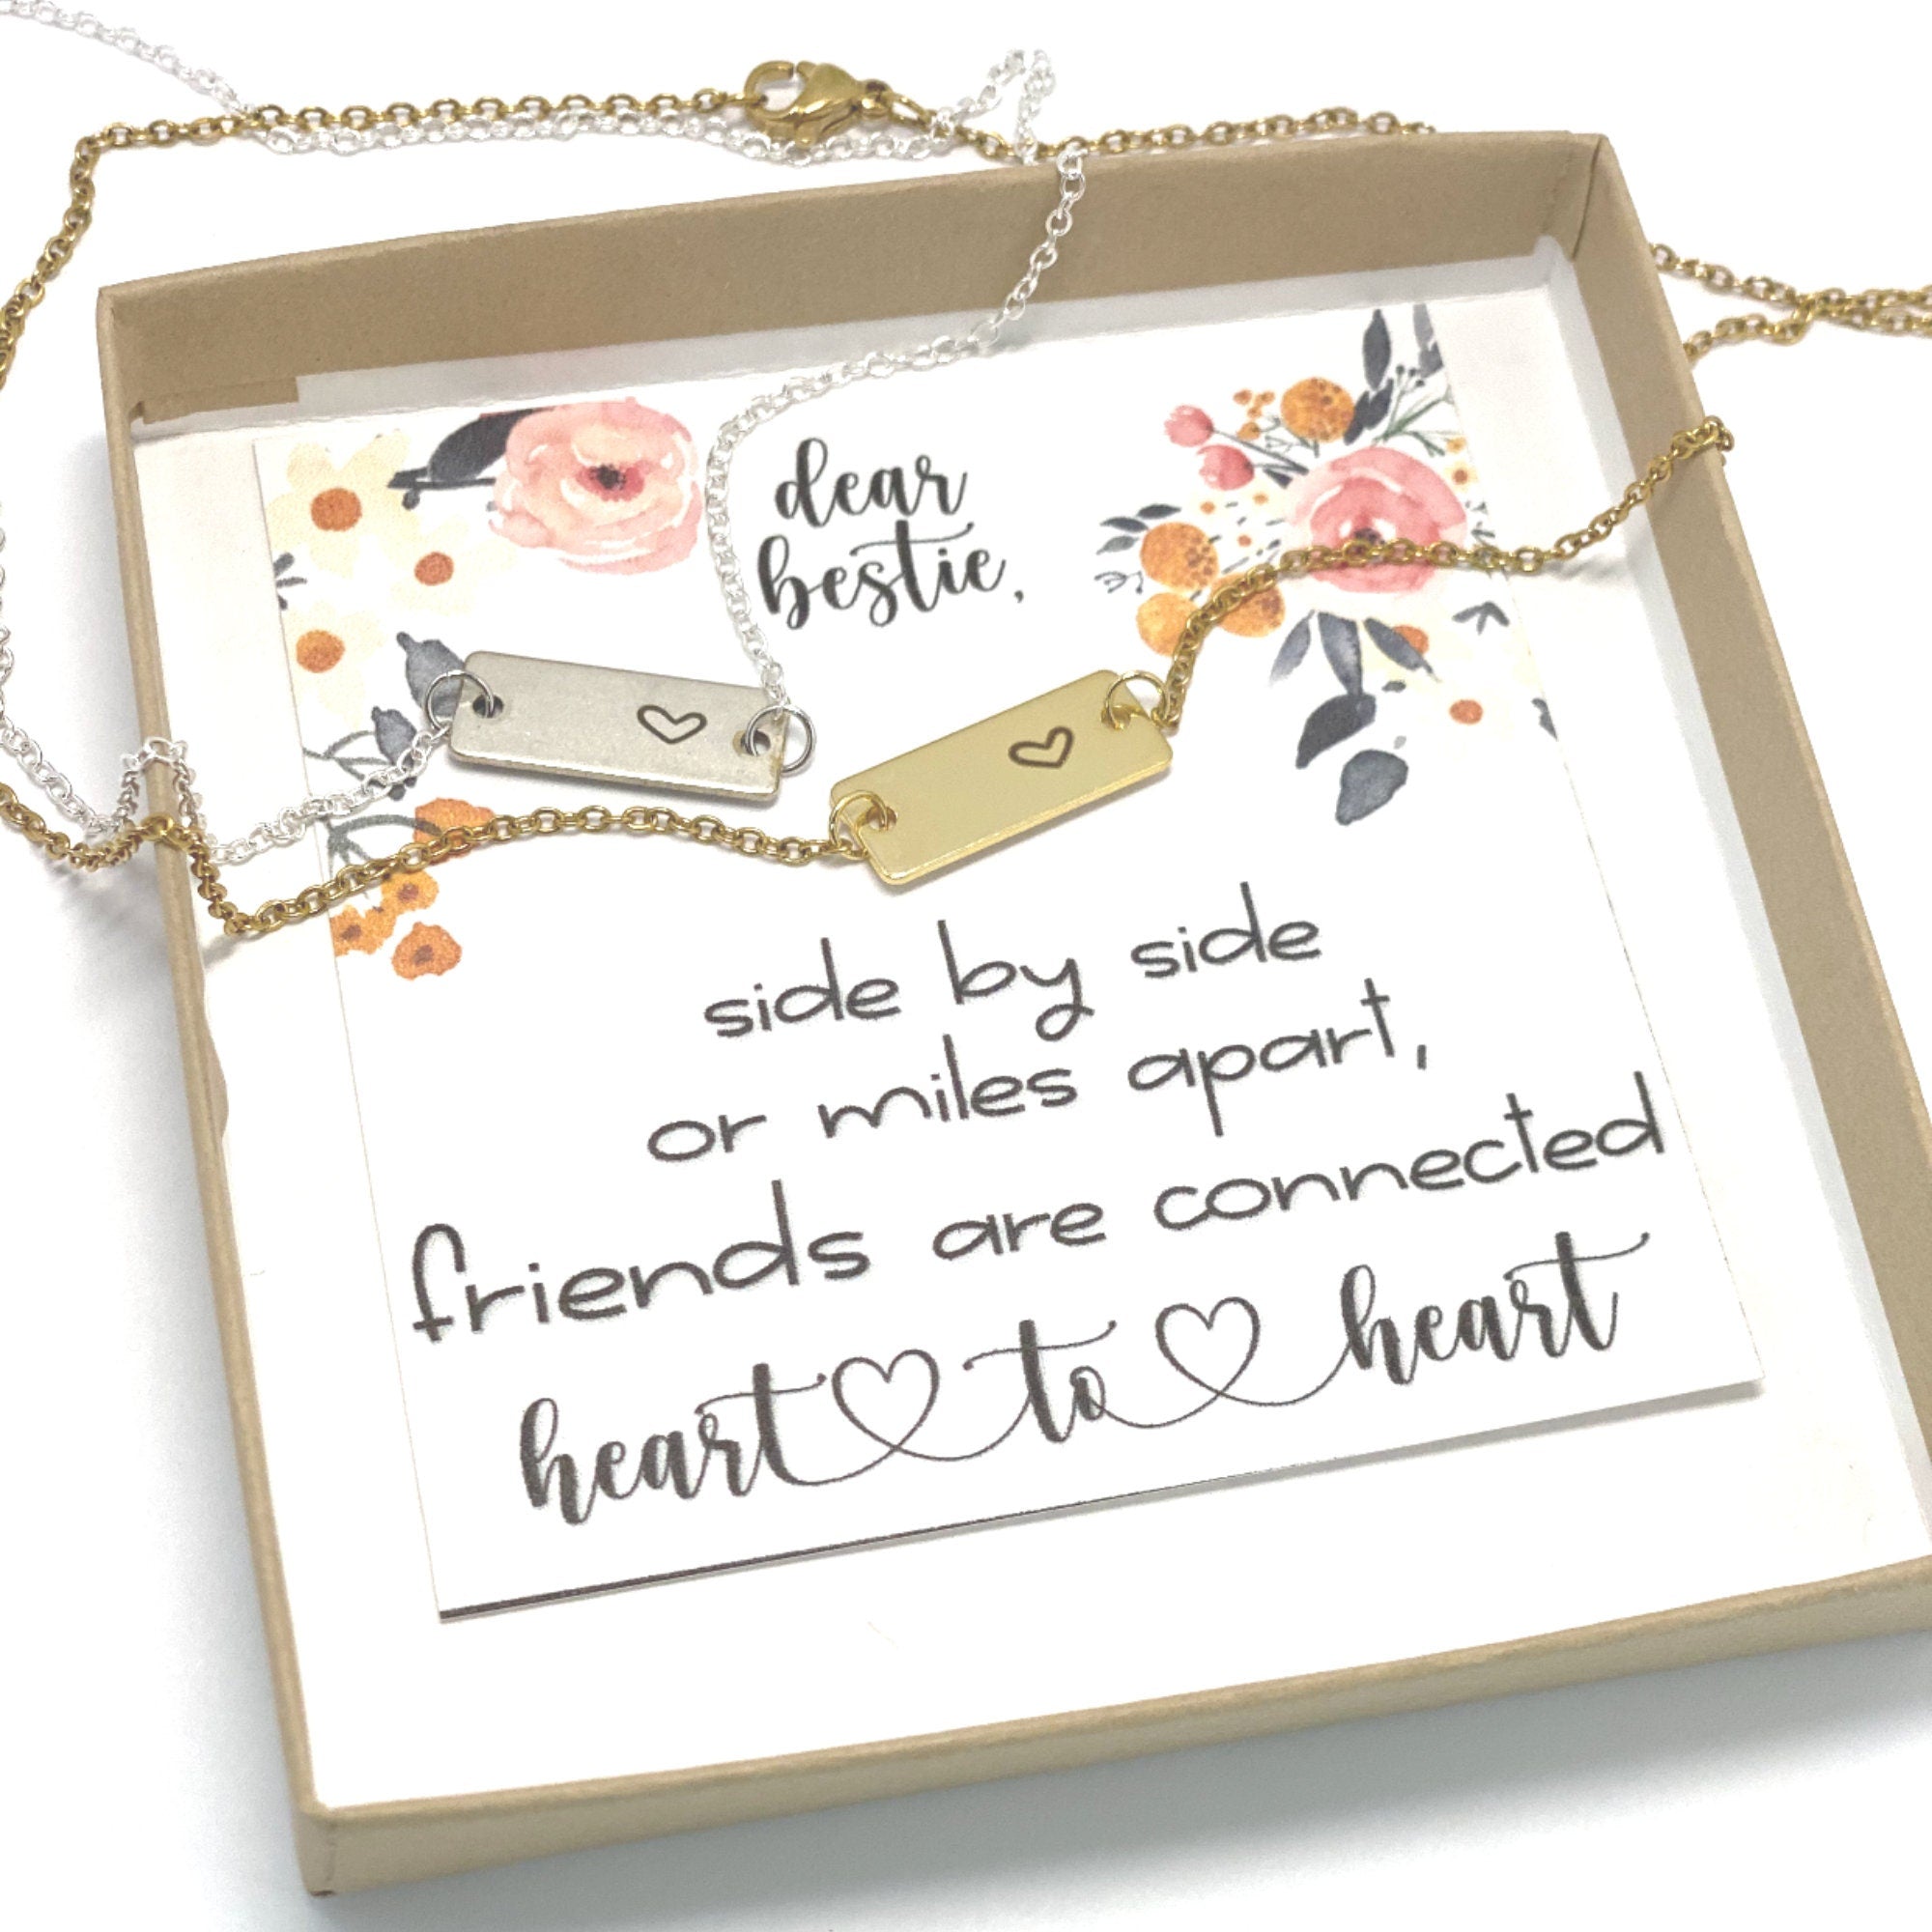 dear
bestie,
side by side
or miles apart,
friends are connected
heart to heart